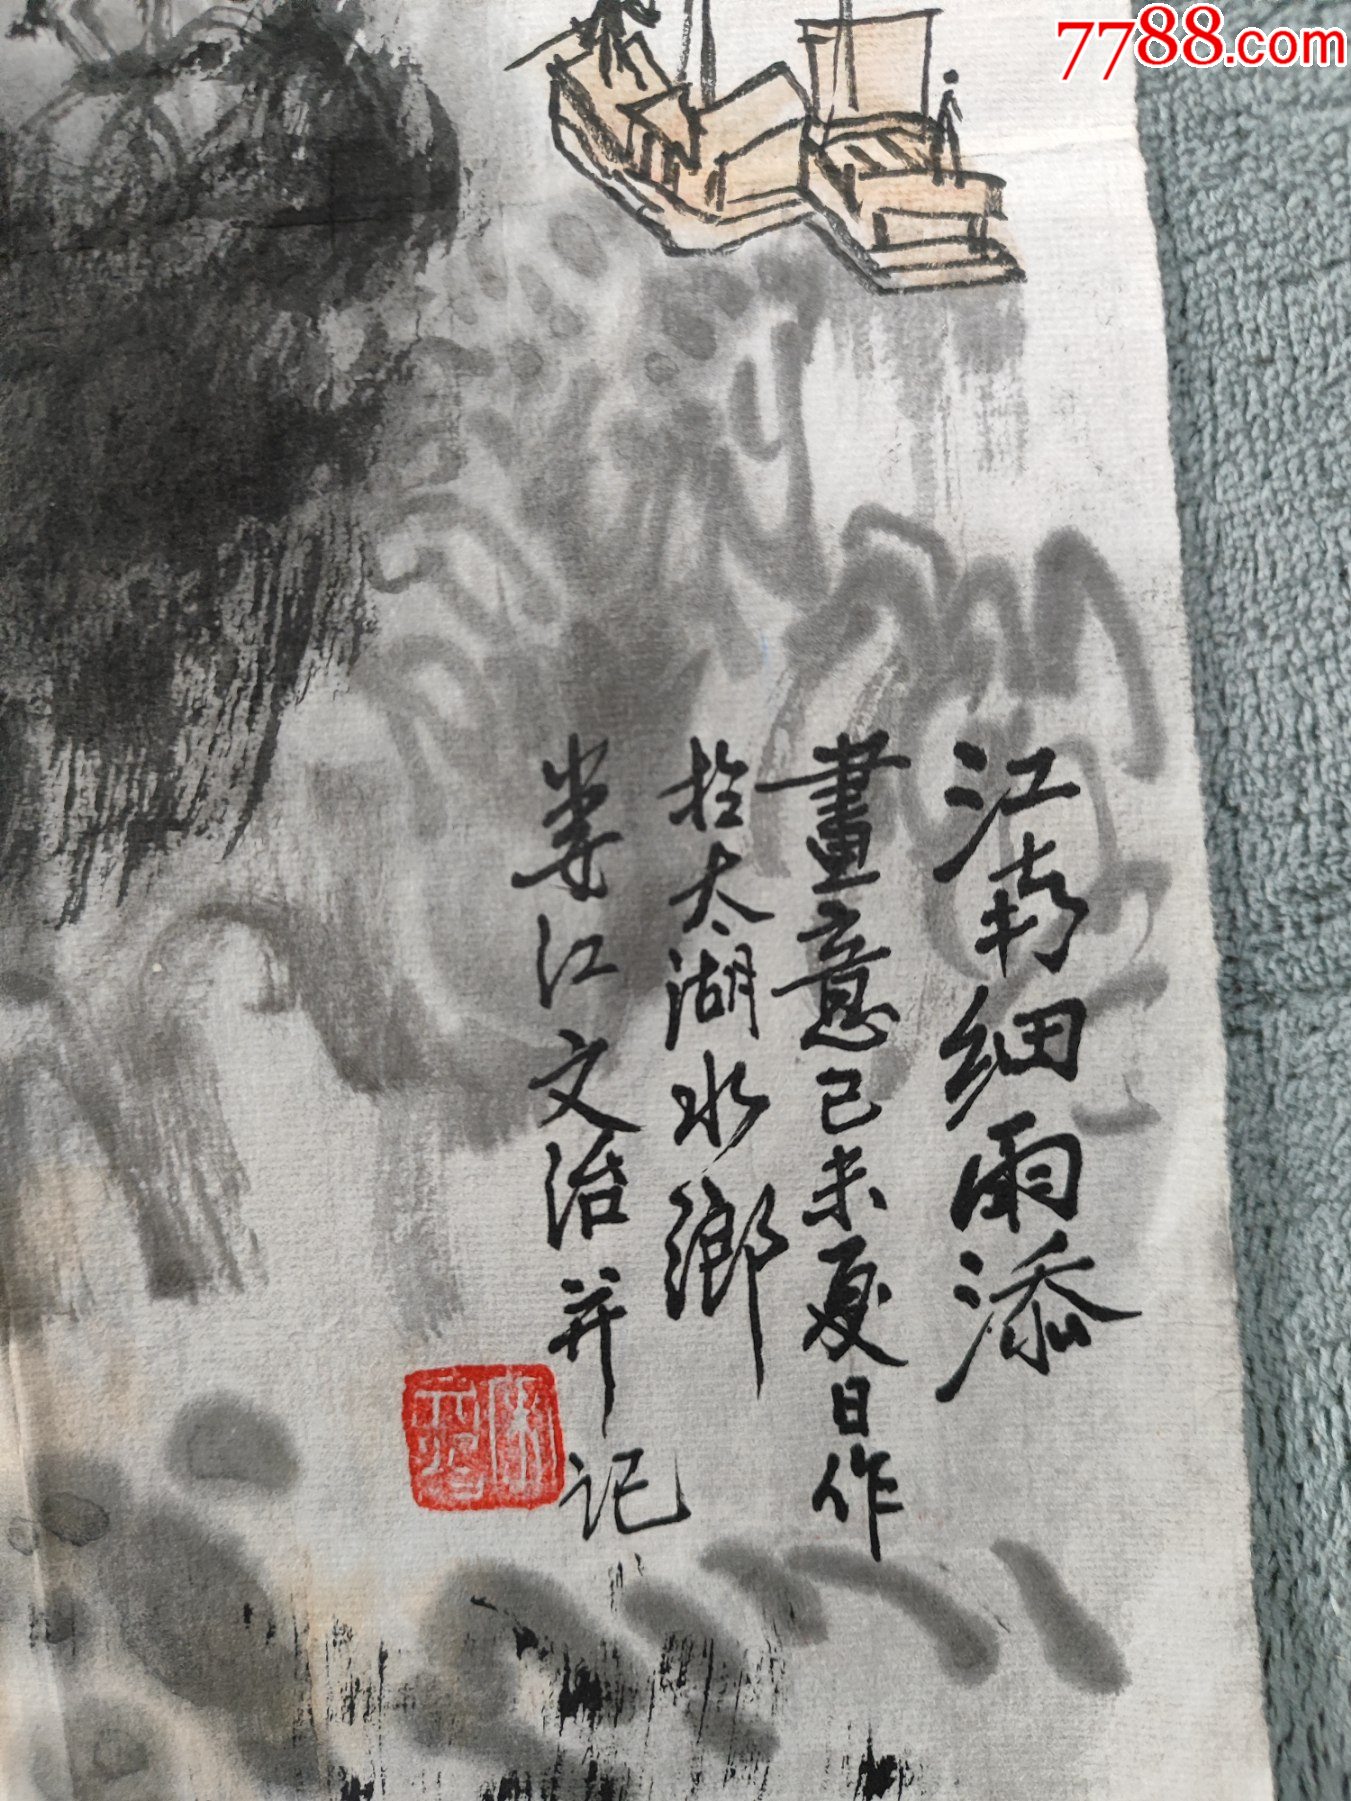 7788.com
江南细雨添
畫意己未夏日作
於太湖水鄉
娄江文治并记